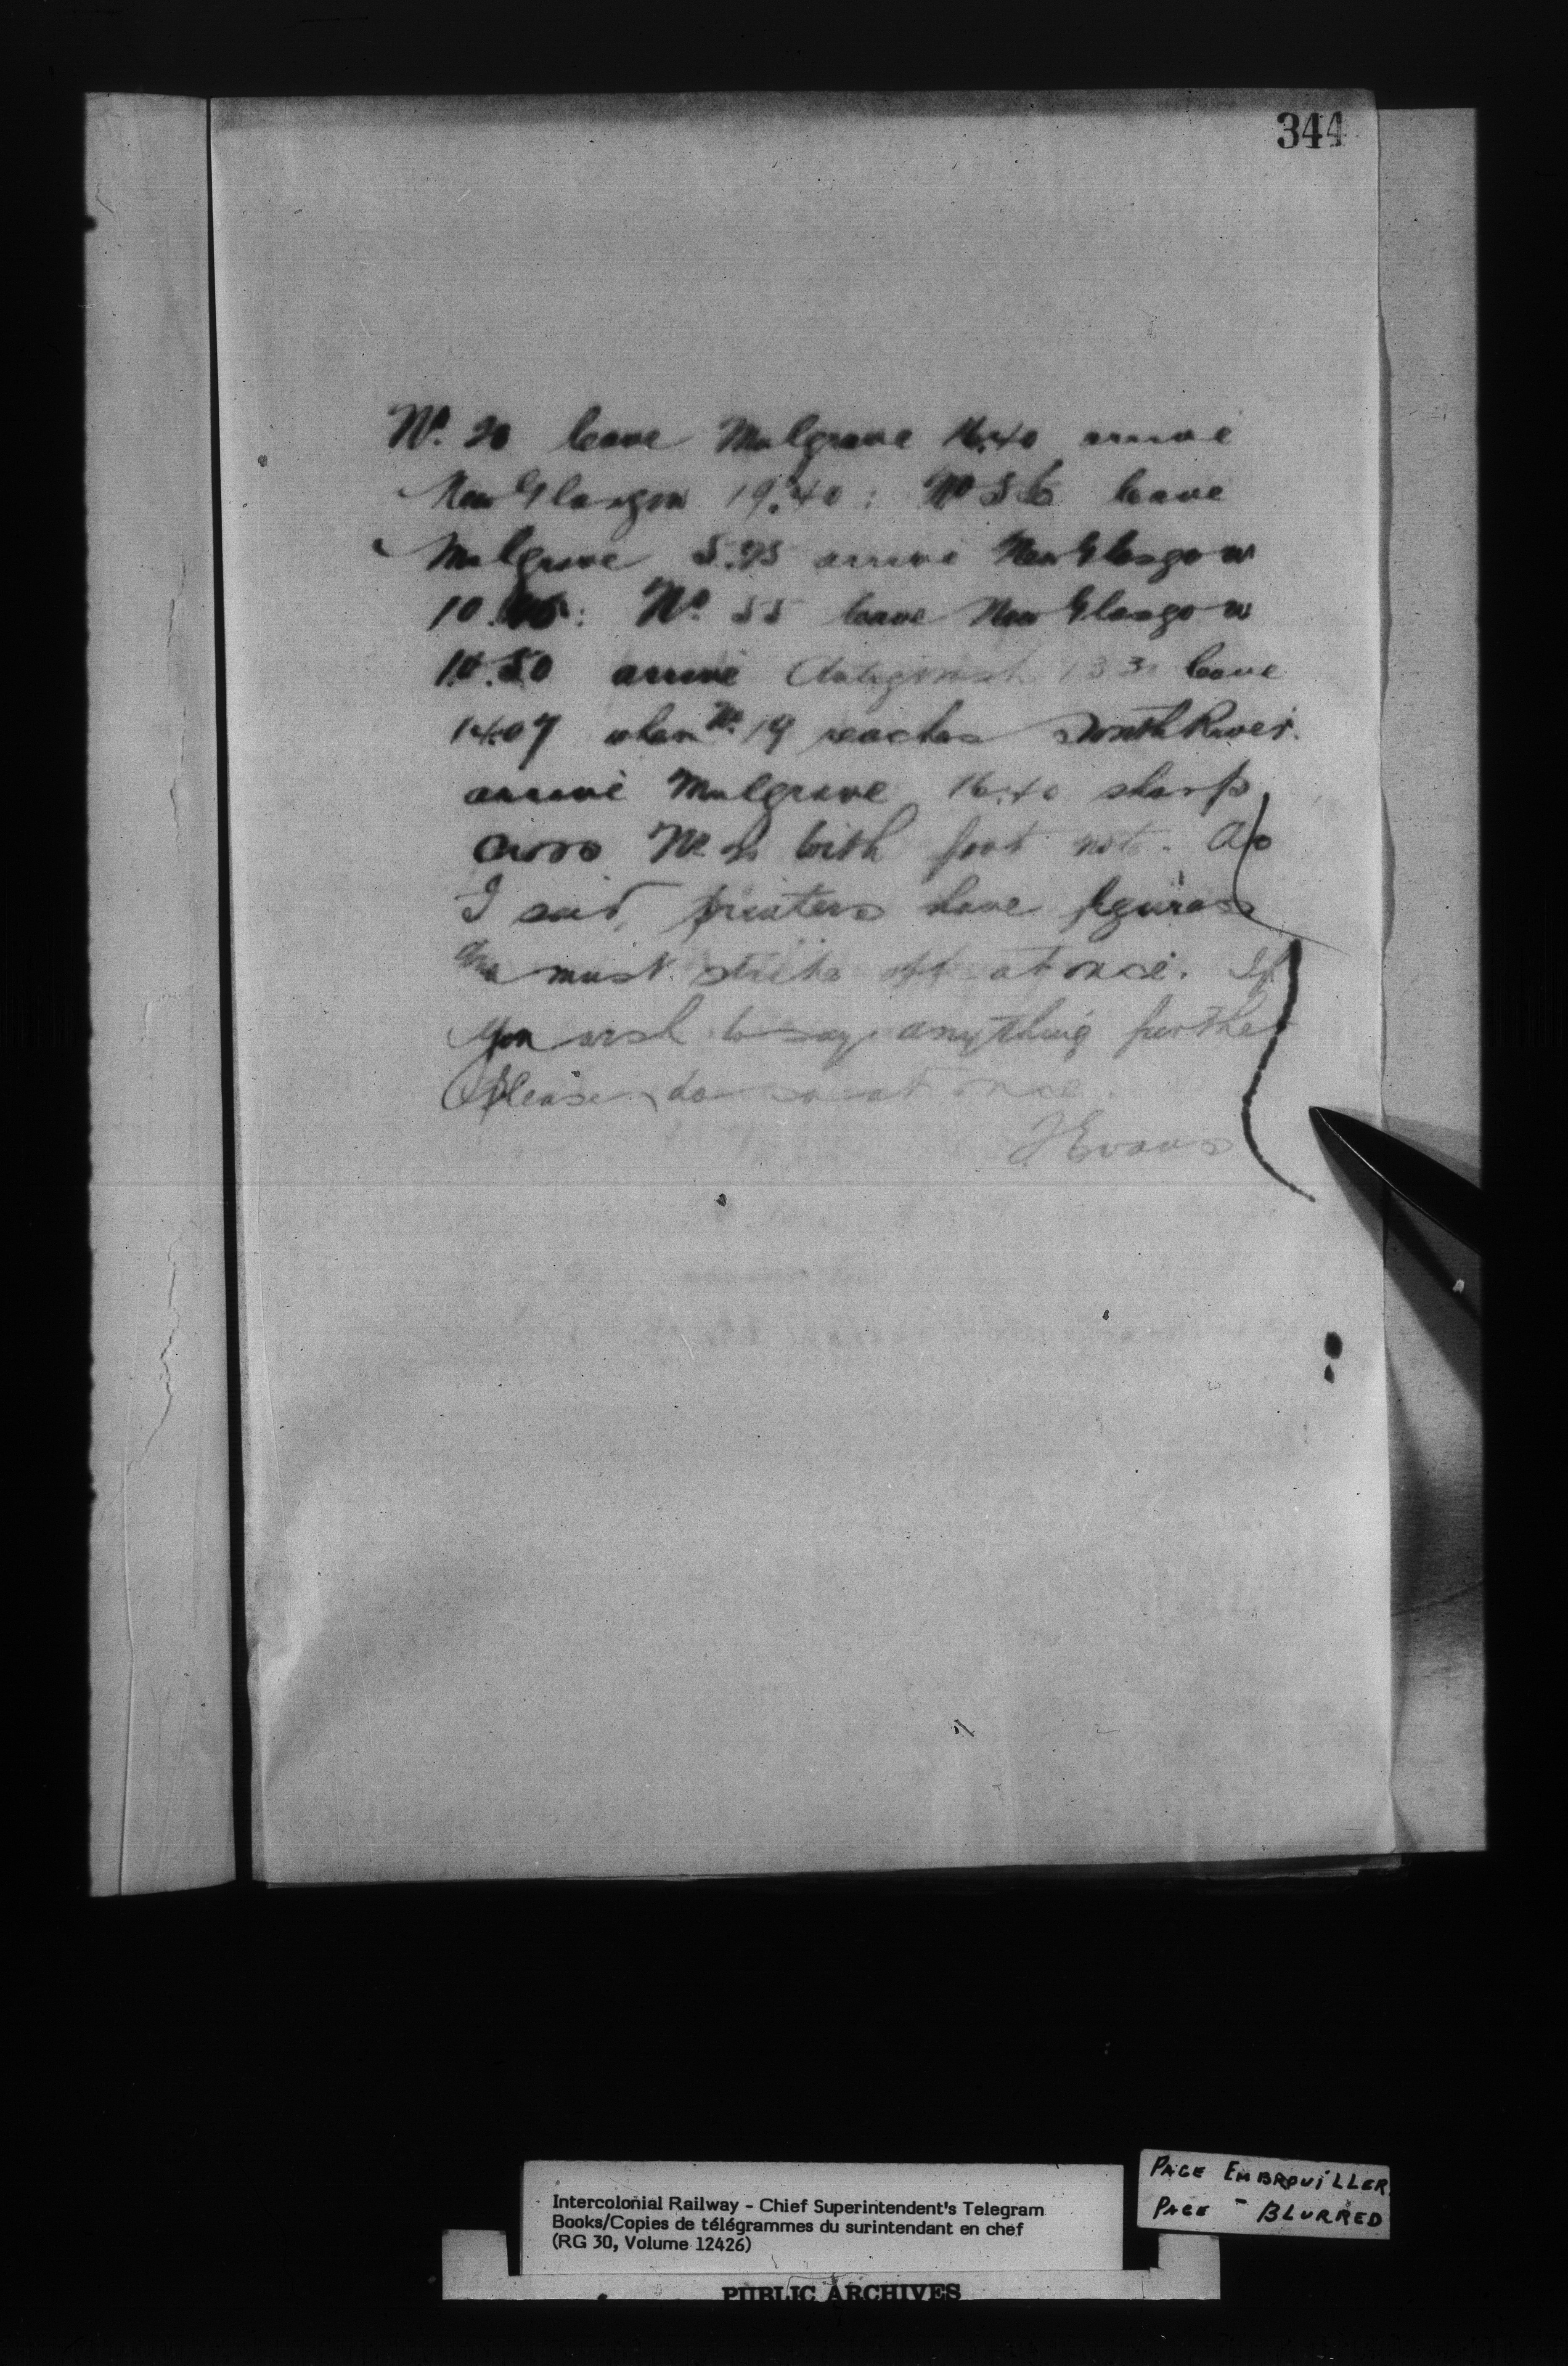 344
No. 20 leave Mulgrave 16.40 arrive
New Glasgow 19.40: No 56 leave
Mulgrave 5.25 arrive New Glasgow
10. : No. 55 leave New Glasgow
10.50 arrive Antigonish 13 3 leave
14.07 when No. 19 reaches South River.
arrive Mulgrave 16.40 sharp
cross No. 20 with foot note. As
I said, printers have figures
must strike off at once. If
you wish to say anything further
Please do so at once.
J Evans
Intercolonial Railway - Chief Superintendent's Telegram
Books/Copies de télégrammes du surintendant en chef
(RG 30, Volume 12426)
PAGE EMBROUILLER
PAGE - BLURRED
PUBLIC ARCHIVES